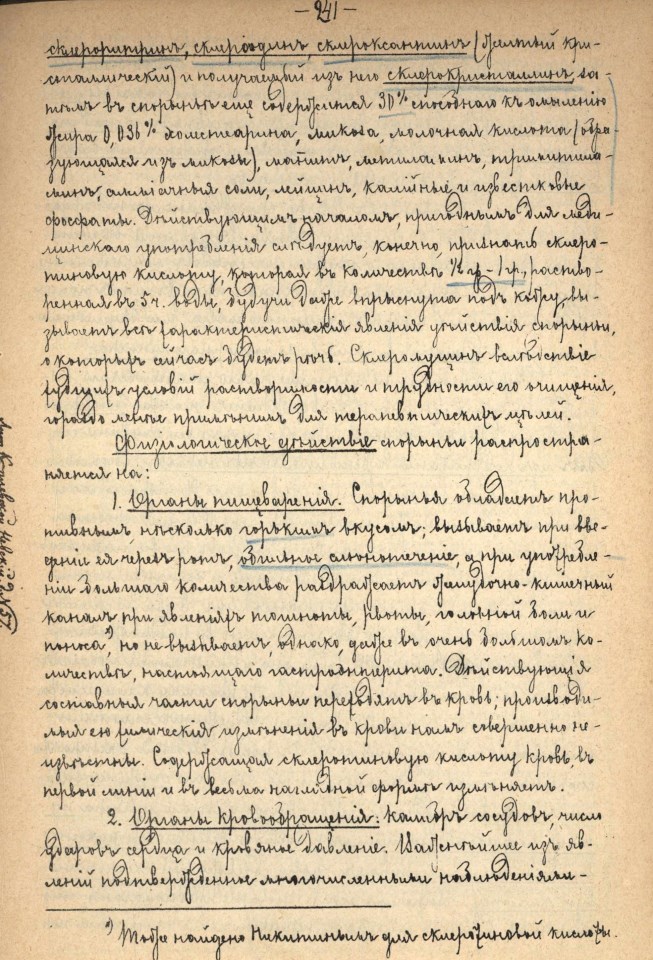 — 241 —
склероритринъ, склеройодинъ, склероксантинъ (желтый кри-
сталлическій) и получаемый изъ него склерокристаллинъ. За-
тѣмъ въ спорыньѣ еще содержится 30% способнаго къ омыленію
жира 0,036% холестеарина, микоза, молочная кислота (обра-
зующаяся изъ микозы), маннитъ, метиламинъ, триметила-
минъ, амміачныя соли, лейцинъ, калійные и известковые
фосфаты. Дѣйствующимъ началомъ, пригоднымъ для меди-
цинскаго употребленія слѣдуетъ, конечно, признать склеро-
тиновую кислоту, которая въ количествѣ ½ гр – 1 гр., раство-
ренная въ 5 ч. воды, будучи даже впрыснута подъ кожу, вы-
зываетъ всѣ характеристическія явленія дѣйствія спорыньи,
о которыхъ сейчасъ будетъ рѣчь. Склеромуцинъ вслѣдствіе
худшихъ условій растворимости и трудности его очищенія,
гораздо менѣе примѣнимъ для терапевтическихъ цѣлей.
Физіологическое дѣйствіе спорыньи распростра-
няется на:
1. Органы пищеваренія. Спорынья обладаетъ про-
тивнымъ, нѣсколько горькимъ вкусомъ; вызываетъ при вве-
деніи ея черезъ ротъ, обильное слюнотеченіе, а при употребле-
ніи большаго количества раздражаетъ желудочно-кишечный
каналъ при явленіяхъ тошноты, рвоты, головной боли и
поноса,*) но не вызываетъ, однако, даже въ очень большомъ ко-
личествѣ, настоящаго гастроэнтерита. Дѣйствующія
составныя части спорыньи переходятъ въ кровь; производи-
мыя ею химическія измѣненія въ крови намъ совершенно не-
извѣстны. Содержащая склеротиновую кислоту кровь, въ
первой линіи и въ весьма наглядной формѣ измѣняетъ.
2. Органы кровообращенія: калибръ сосудовъ, число
ударовъ сердца и кровяное давленіе. Важнѣйшее изъ яв-
леній подтвержденное многочисленными наблюденіями –
*) Тоже найдено Никитинымъ для склеротиновой кислоты.